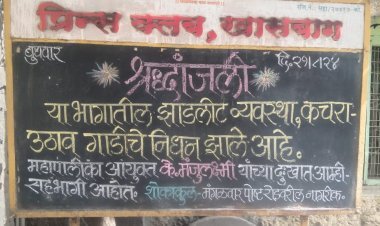 प्रिन्स क्लब, खासबाग
बुधवार
दि.२१.८.२४
श्रद्धांजली
या भागातील झाडलोट व्यवस्था, कचरा-
उठाव गाडीचे निधन झाले आहे.
महापालीका आयुक्त के.मंजुलक्ष्मी यांच्या दुःखात आम्ही-
सहभागी आहोत. शोकाकुल- मंगळवार पोष्ट रोडवरील नागरीक.